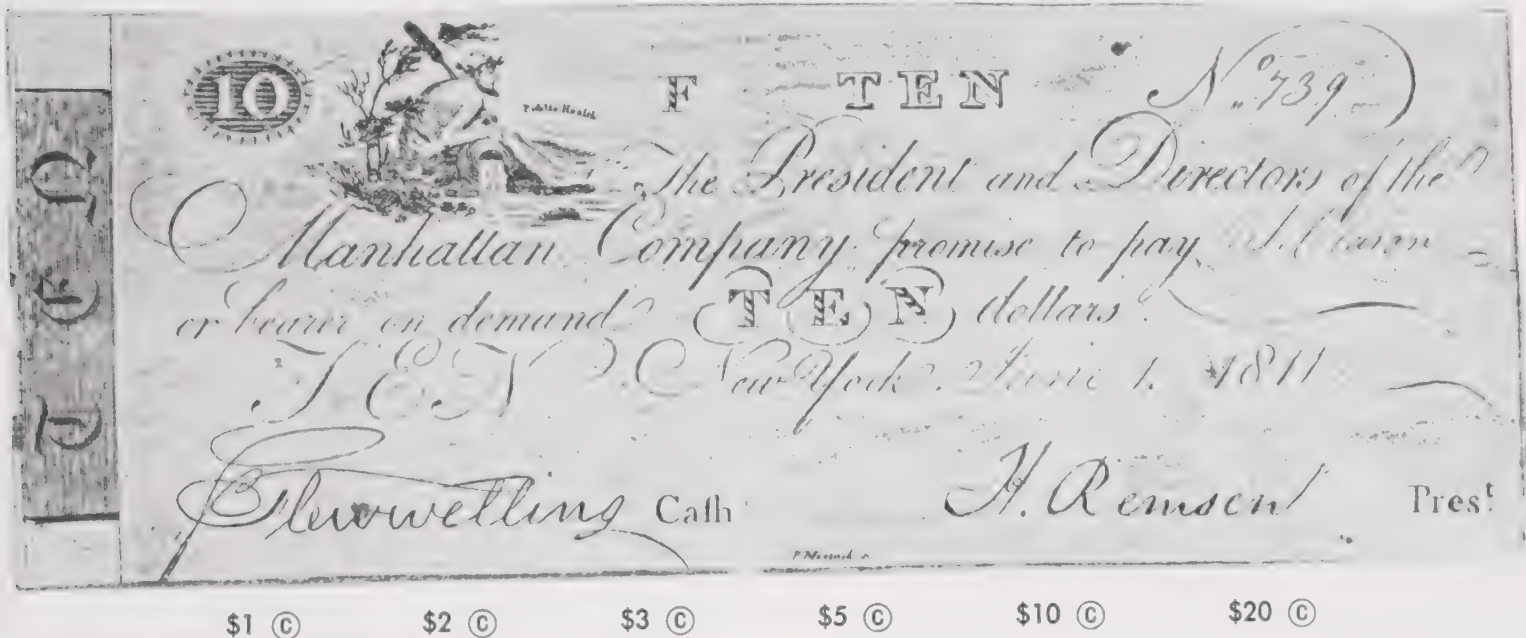 10 Public Health F TEN No. 739
The President and Directors of the
Manhattan Company promise to pay
or bearer on demand TEN dollars
TEN New York June 1. 1811
Flewwelling Cash H. Remsen Prest.
TEN
$1 © $2 © $3 © $5 © $10 © $20 ©